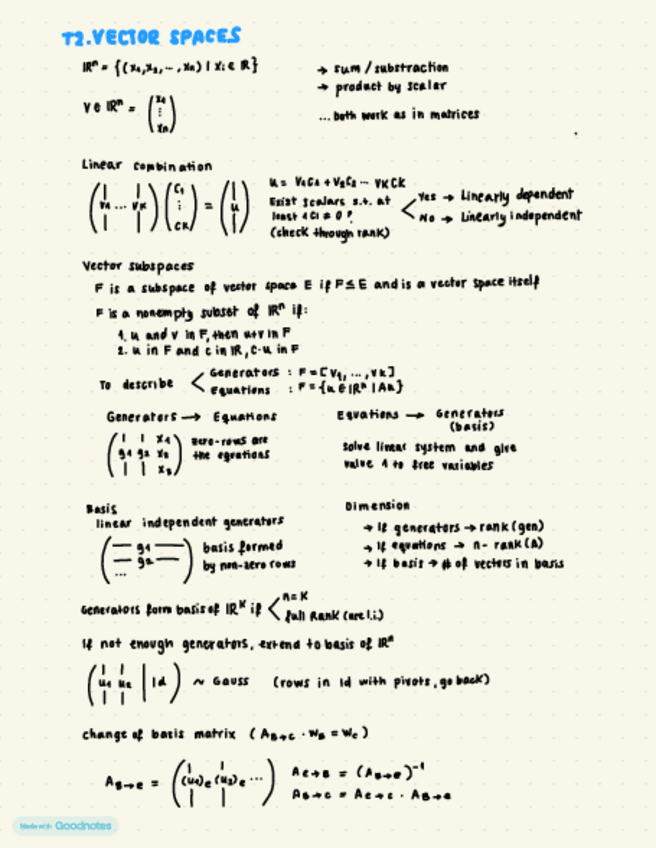 T2.VECTOR SPACES
IRⁿ = {(x₁,x₂,...,xₙ) | xᵢ ∈ IR}
→ sum / substraction
→ product by scalar
V ∈ IRⁿ = (x₁ ⋮ xₙ)
... both work as in matrices
Linear combination
(v₁ ... vₖ) (c₁ ⋮ cₖ) = (u)
u = V₁C₁ + V₂C₂ ... VKCK
Exist scalars s.t. at
least 1 Ci ≠ 0?
(check through rank)
Yes → Linearly dependent
No → Linearly independent
Vector subspaces
F is a subspace of vector space E if F ≤ E and is a vector space itself
F is a nonempty subset of IRⁿ if:
1. u and v in F, then u+v in F
2. u in F and c in IR, c·u in F
To describe
Generators : F = [v₁, ..., vₖ]
Equations : F = {u ∈ IRⁿ | Au}
Generators → Equations
(g₁ g₂ x₁ x₂ x₃)
zero-rows are
the equations
Equations → Generators
(basis)
solve linear system and give
value 1 to free variables
Basis
linear independent generators
(— g₁ — — g₂ — ...)
basis formed
by non-zero rows
Dimension
→ If generators → rank(gen)
→ If equations → n - rank(A)
→ If basis → # of vectors in basis
Generators form basis of IRᴷ if
n=K
full Rank (are l.i.)
If not enough generators, extend to basis of IRⁿ
(u₁ u₂ | Id) ~ Gauss (rows in Id with pivots, go back)
change of basis matrix (A_B→C · W_B = W_C)
A_B→e = ((u₁)e (u₂)e ...)
A_e→B = (A_B→e)⁻¹
A_B→C = A_e→C · A_B→e
Made with Goodnotes